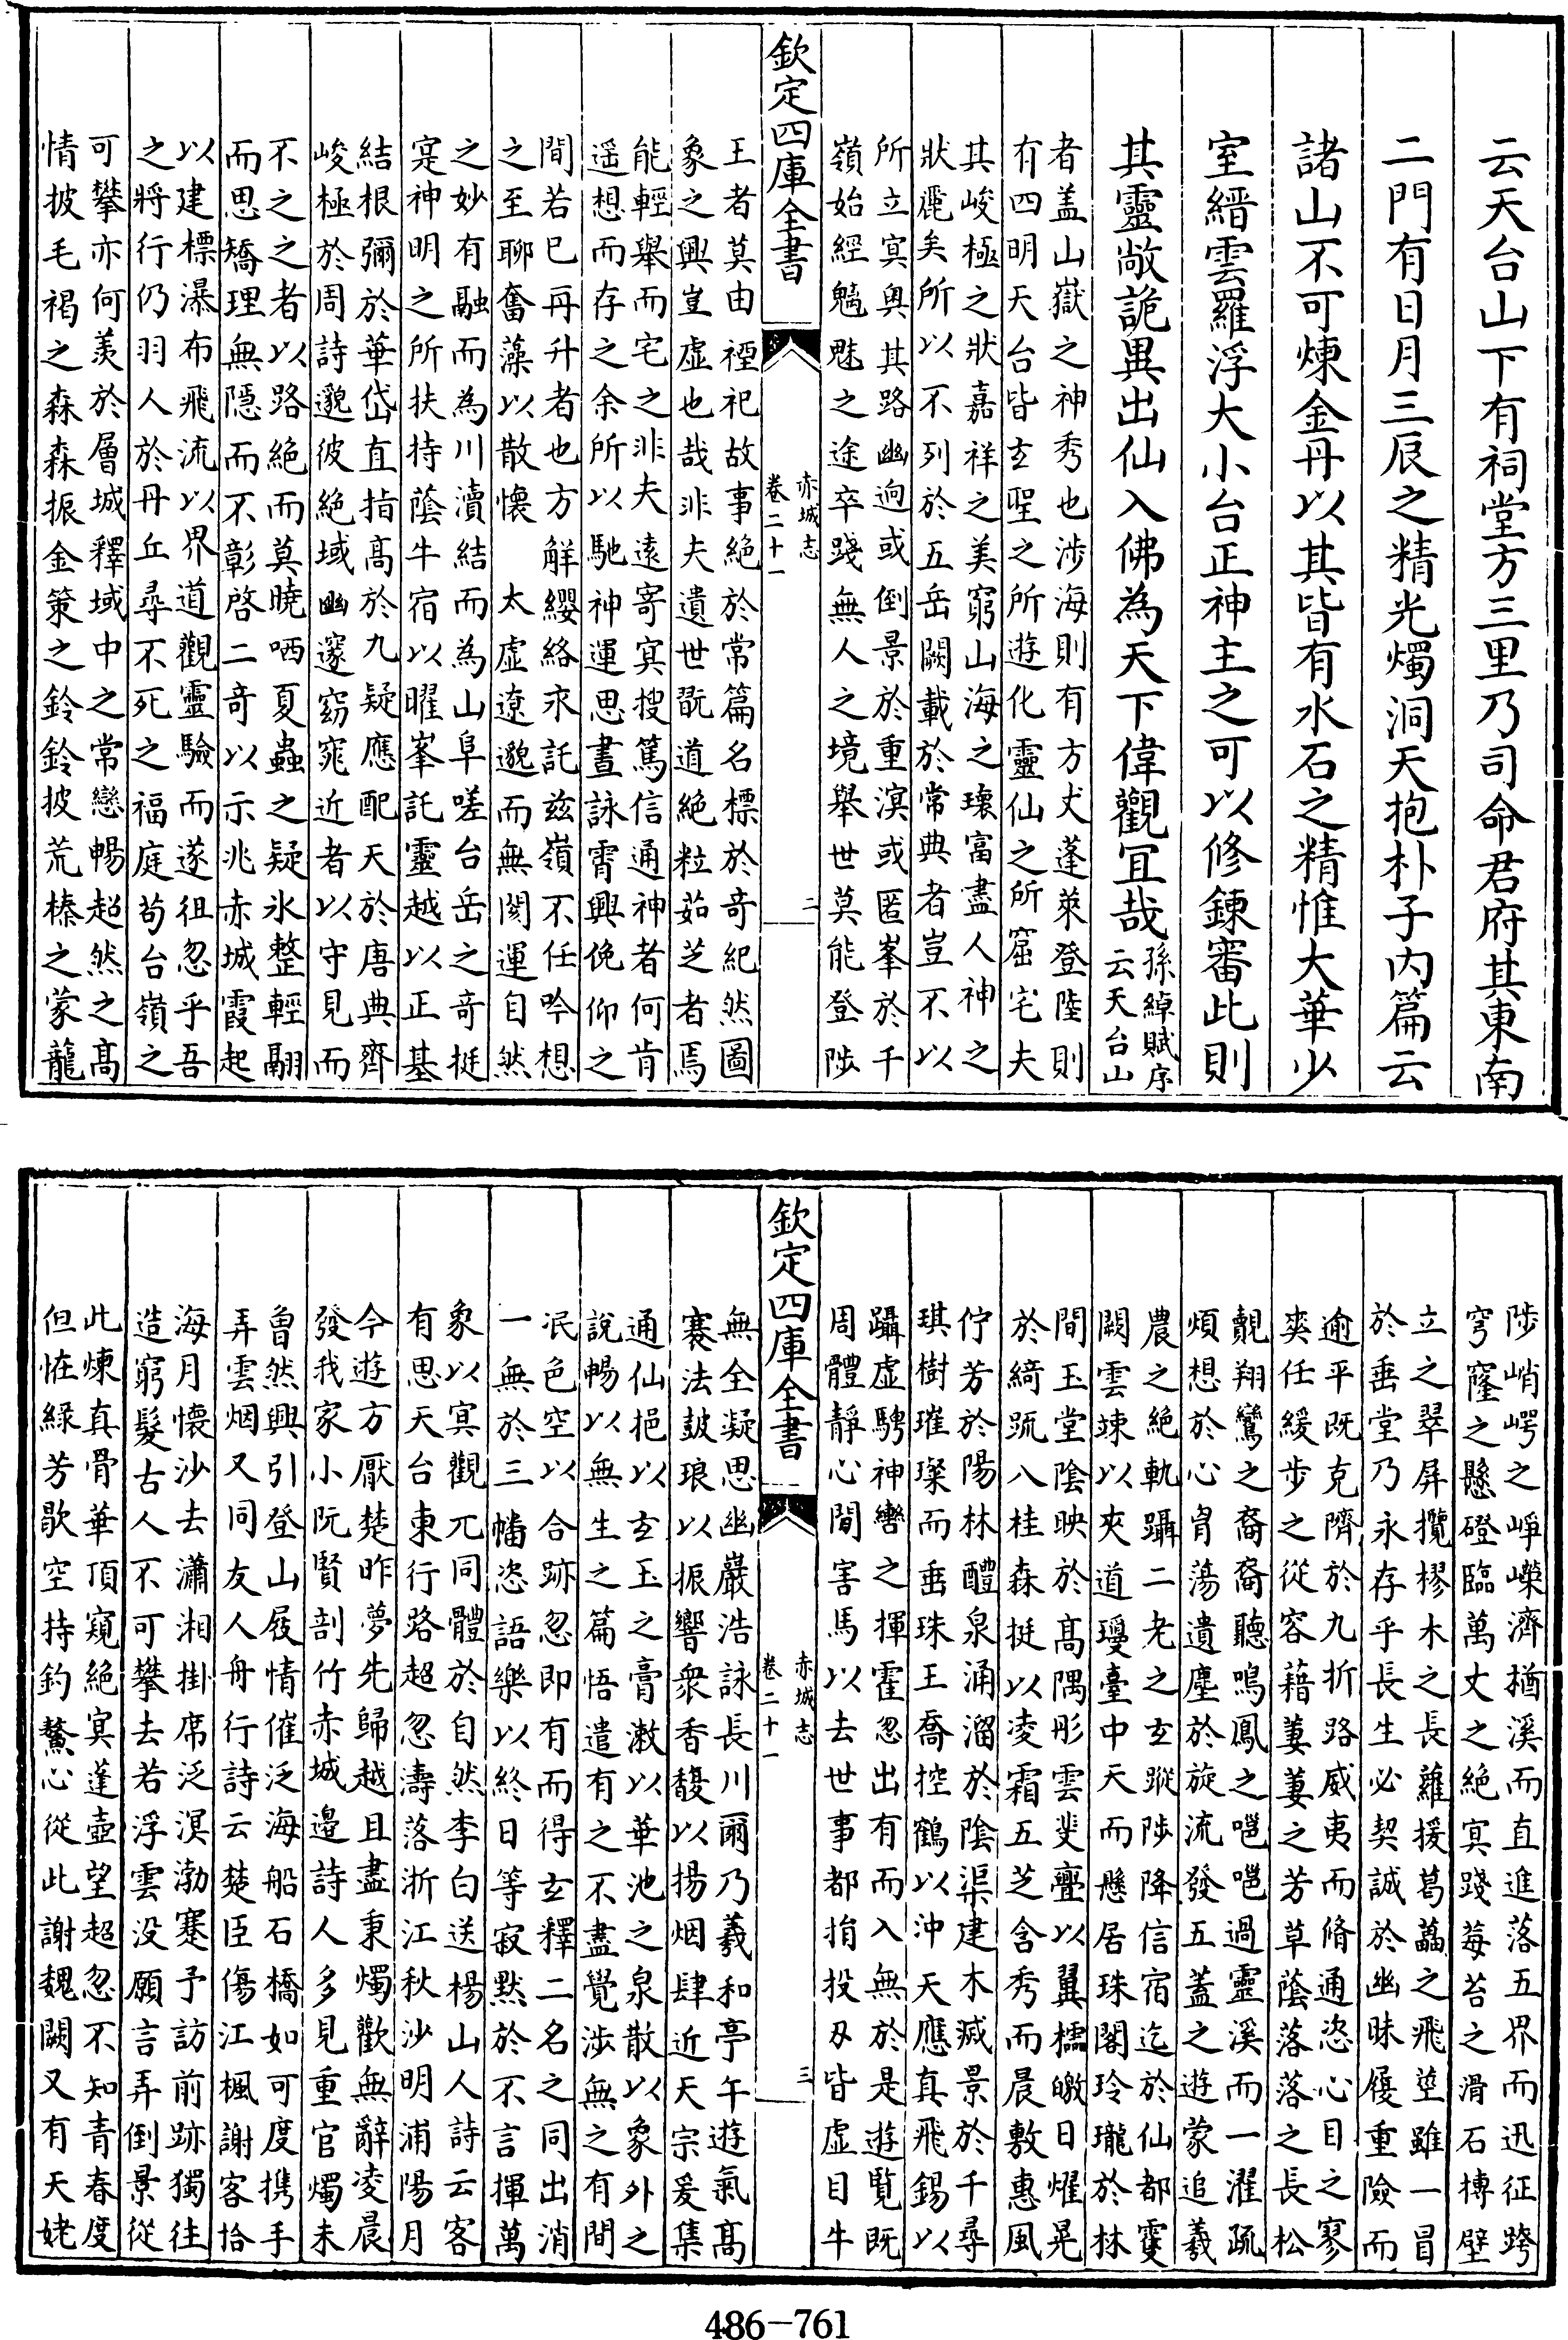 云天台山下有祠堂方三里乃司命君府其東南
二門有日月三辰之精光燭洞天抱朴子内篇云
諸山不可煉金丹以其皆有水石之精惟大華少
室縉雲羅浮大小台正神主之可以修鍊審此則
其靈敞詭異出仙入佛為天下偉觀宜哉
孫綽賦序
云天台山
者盖山嶽之神秀也涉海則有方丈蓬萊登陸則
有四明天台皆玄聖之所遊化靈仙之所窟宅夫
其峻極之狀嘉祥之美窮山海之瓌富盡人神之
壯麗矣所以不列於五岳闕載於常典者豈不以
所立冥奥其路幽逈或倒景於重溟或匿峯於千
嶺始經魑魅之途卒踐無人之境舉世莫能登陟
欽定四庫全書
赤城志
卷二十一
二
王者莫由禋祀故事絶於常篇名標於奇紀然圖
象之興豈虚也哉非夫遺世翫道絶粒茹芝者焉
能輕舉而宅之非夫遠寄冥搜篤信通神者何肯
遥想而存之余所以馳神運思晝詠宵興俛仰之
間若已再升者也方解纓絡永託兹嶺不任吟想
之至聊奮藻以散懷 太虚遼邈而無閡運自然
之妙有融而為川瀆結而為山阜嗟台岳之奇挺
寔神明之所扶持蔭牛宿以曜峯託靈越以正基
結根彌於華岱直指高於九疑應配天於唐典齊
峻極於周詩邈彼絶域幽邃窈窕近者以守見而
不之之者以路絶而莫曉哂夏蟲之疑氷整輕翮
而思矯理無隱而不彰啓二奇以示兆赤城霞起
以建標瀑布飛流以界道觀靈驗而遂徂忽乎吾
之將行仍羽人於丹丘尋不死之福庭茍台嶺之
可攀亦何羡於層城釋域中之常戀暢超然之高
情披毛褐之森森振金策之鈴鈴披荒榛之蒙蘢
陟峭崿之崢嶸濟楢溪而直進落五界而迅征跨
穹窿之懸磴臨萬丈之絶冥踐莓苔之滑石搏壁
立之翠屏攬樛木之長蘿援葛藟之飛莖雖一冒
於垂堂乃永存乎長生必契誠於幽昧履重險而
逾平既克隮於九折路威夷而脩通恣心目之寥
爽任緩步之從容藉萋萋之芳草蔭落落之長松
覿翔鸞之裔裔聽鳴鳳之嗈嗈過靈溪而一濯疏
煩想於心胷蕩遺塵於旋流發五蓋之遊蒙追羲
農之絶軌躡二老之玄蹤陟降信宿迄於仙都雙
闕雲竦以夾道瓊臺中天而懸居珠閣玲瓏於林
間玉堂陰映於高隅彤雲斐亹以翼櫺皦日耀晃
於綺疏八桂森挺以凌霜五芝含秀而晨敷惠風
佇芳於陽林醴泉涌溜於陰渠建木㓕景於千尋
琪樹璀璨而垂珠王喬控鶴以沖天應真飛錫以
躡虚騁神轡之揮霍忽出有而入無於是遊覧既
周體静心閒害馬以去世事都捐投刃皆虚目牛
欽定四庫全書
赤城志
卷二十一
三
無全凝思幽巖浩詠長川爾乃羲和亭午遊氣高
褰法鼓琅以振響衆香馥以揚烟肆近天宗爰集
通仙挹以玄玉之膏漱以華池之泉散以象外之
說暢以無生之篇悟遣有之不盡覺涉無之有間
泯色空以合跡忽即有而得玄釋二名之同出消
一無於三幡恣語樂以終日等寂黙於不言揮萬
象以冥觀兀同體於自然李白送楊山人詩云客
有思天台東行路超忽濤落浙江秋沙明浦陽月
今遊方厭楚昨夢先歸越且盡秉燭歡無辭凌晨
發我家小阮賢剖竹赤城邉詩人多見重官燭未
曾然興引登山屐情催泛海船石橋如可度携手
弄雲烟又同友人舟行詩云楚臣傷江楓謝客拾
海月懷沙去瀟湘掛席泛溟渤蹇予訪前跡獨往
造窮髮古人不可攀去若浮雲没願言弄倒景從
此煉真骨華頂窺絶冥蓬壺望超忽不知青春度
但恠緑芳歇空持釣鰲心從此謝魏闕又有天姥
486-761